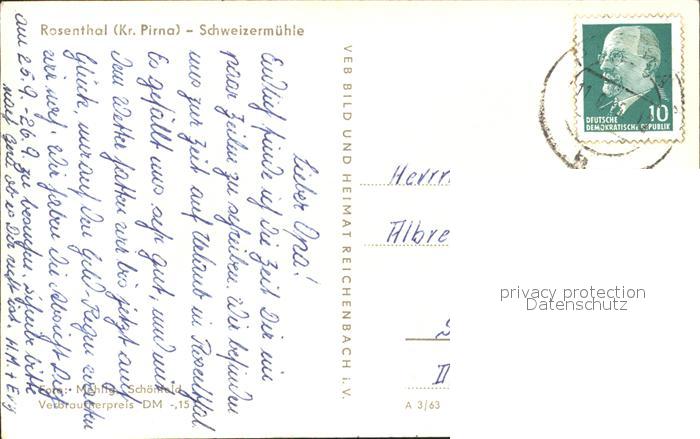 Rosenthal (Kr. Pirna) – Schweizermühle
Lieber Opa!
Endlich finde ich die Zeit Dir ein
paar Zeilen zu schreiben. Wir befinden
uns zur Zeit auf Urlaub in Rosenthal.
Es gefällt uns sehr gut, und mit
dem Wetter hatten wir bis jetzt auch
Glück, nur auf den Geld-Regen warten
wir noch. Wir haben die Absicht Dich
am 25.9.-26.9. zu besuchen. Schreibe bitte
mal, ob es Dir recht ist.
Foto: Schönfeld
Verbraucherpreis DM -,15
VEB BILD UND HEIMAT REICHENBACH i. V.
A 3/63
10
DEUTSCHE
DEMOKRATISCHE REPUBLIK
Herrn
Albre
privacy protection
Datenschutz